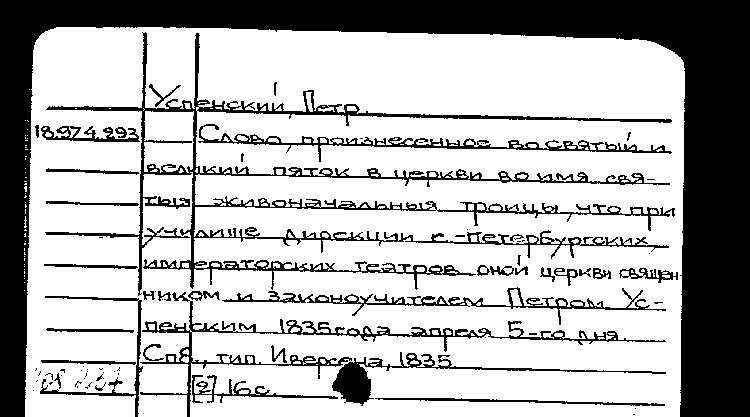 Успенский, Петр.
18.974.293 Слово, произнесенное во святый и
великий пяток в церкви во имя свя-
тыя живоначальныя троицы, что при
училище дирекции с.-Петербургских,
императорских театров оной церкви священ-
ником и законоучителем Петром Ус-
пенским 1835 года апреля 5-го дня.
Спб., тип. Иверсена, 1835
[2], 16 с.